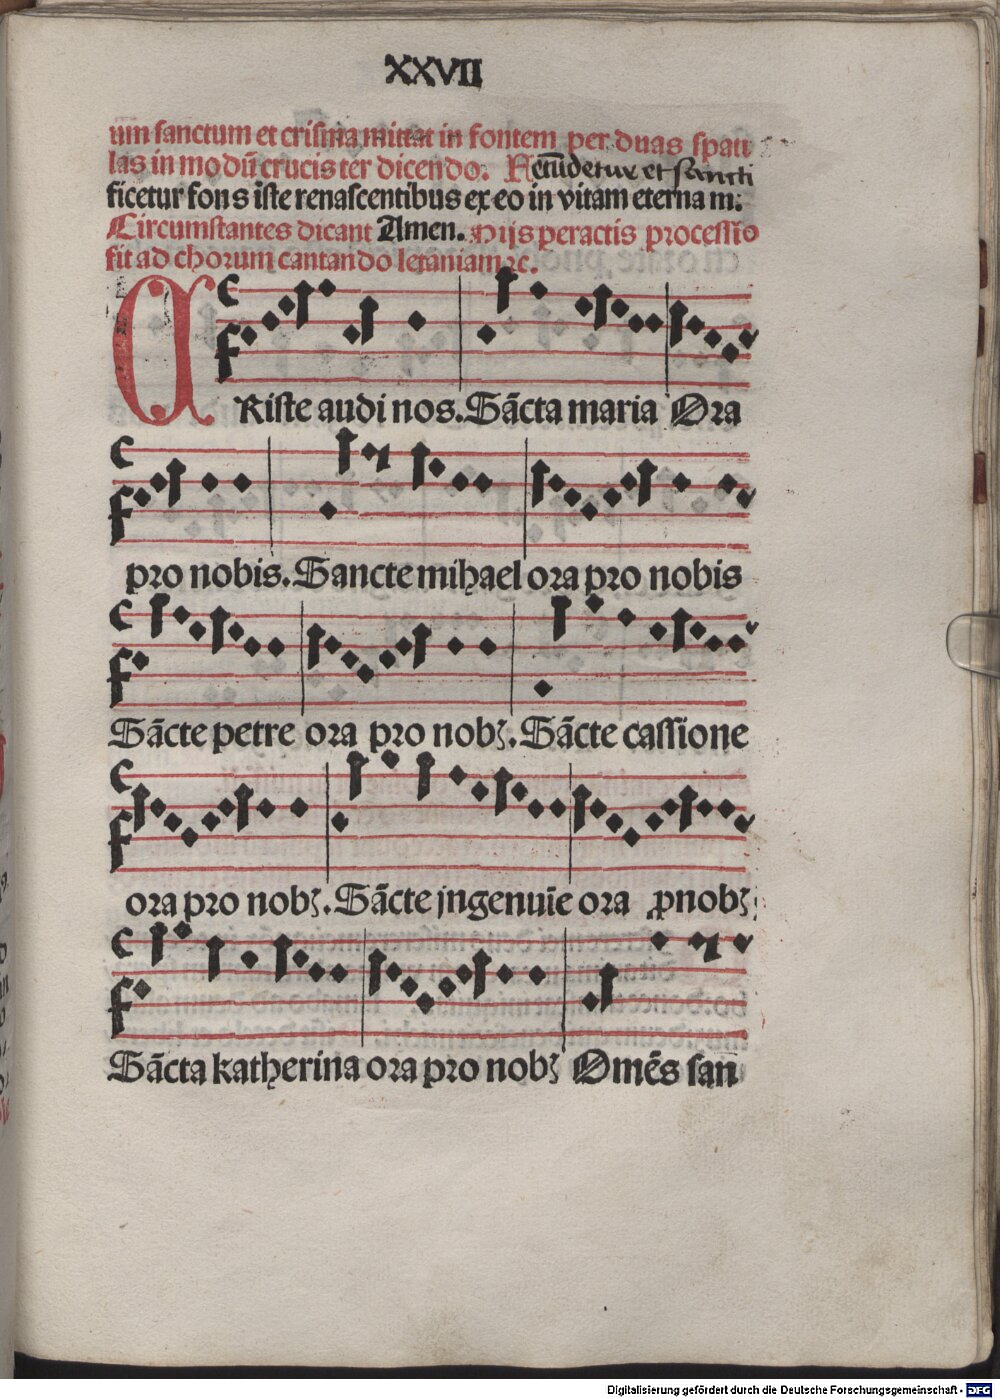 XXVII
um sanctum et crisma mittat in fontem per duas spatu
las in modũ crucis ter dicendo. Fecũdetur et sancti
ficetur fons iste renascentibus ex eo in vitam eternam.
Circumstantes dicant Amen. Hijs peractis processio
fit ad chorum cantando letaniam ꝛc.
CRiste audi nos. Sãcta maria Ora
pro nobis. Sancte mihael ora pro nobis
Sãcte petre ora pro nobꝫ. Sãcte cassione
ora pro nobꝫ. Sãcte jngenuĩe ora ꝓ nobꝫ
Sãcta katherina ora pro nobꝫ Omẽs san
Digitalisierung gefördert durch die Deutsche Forschungsgemeinschaft - DFG